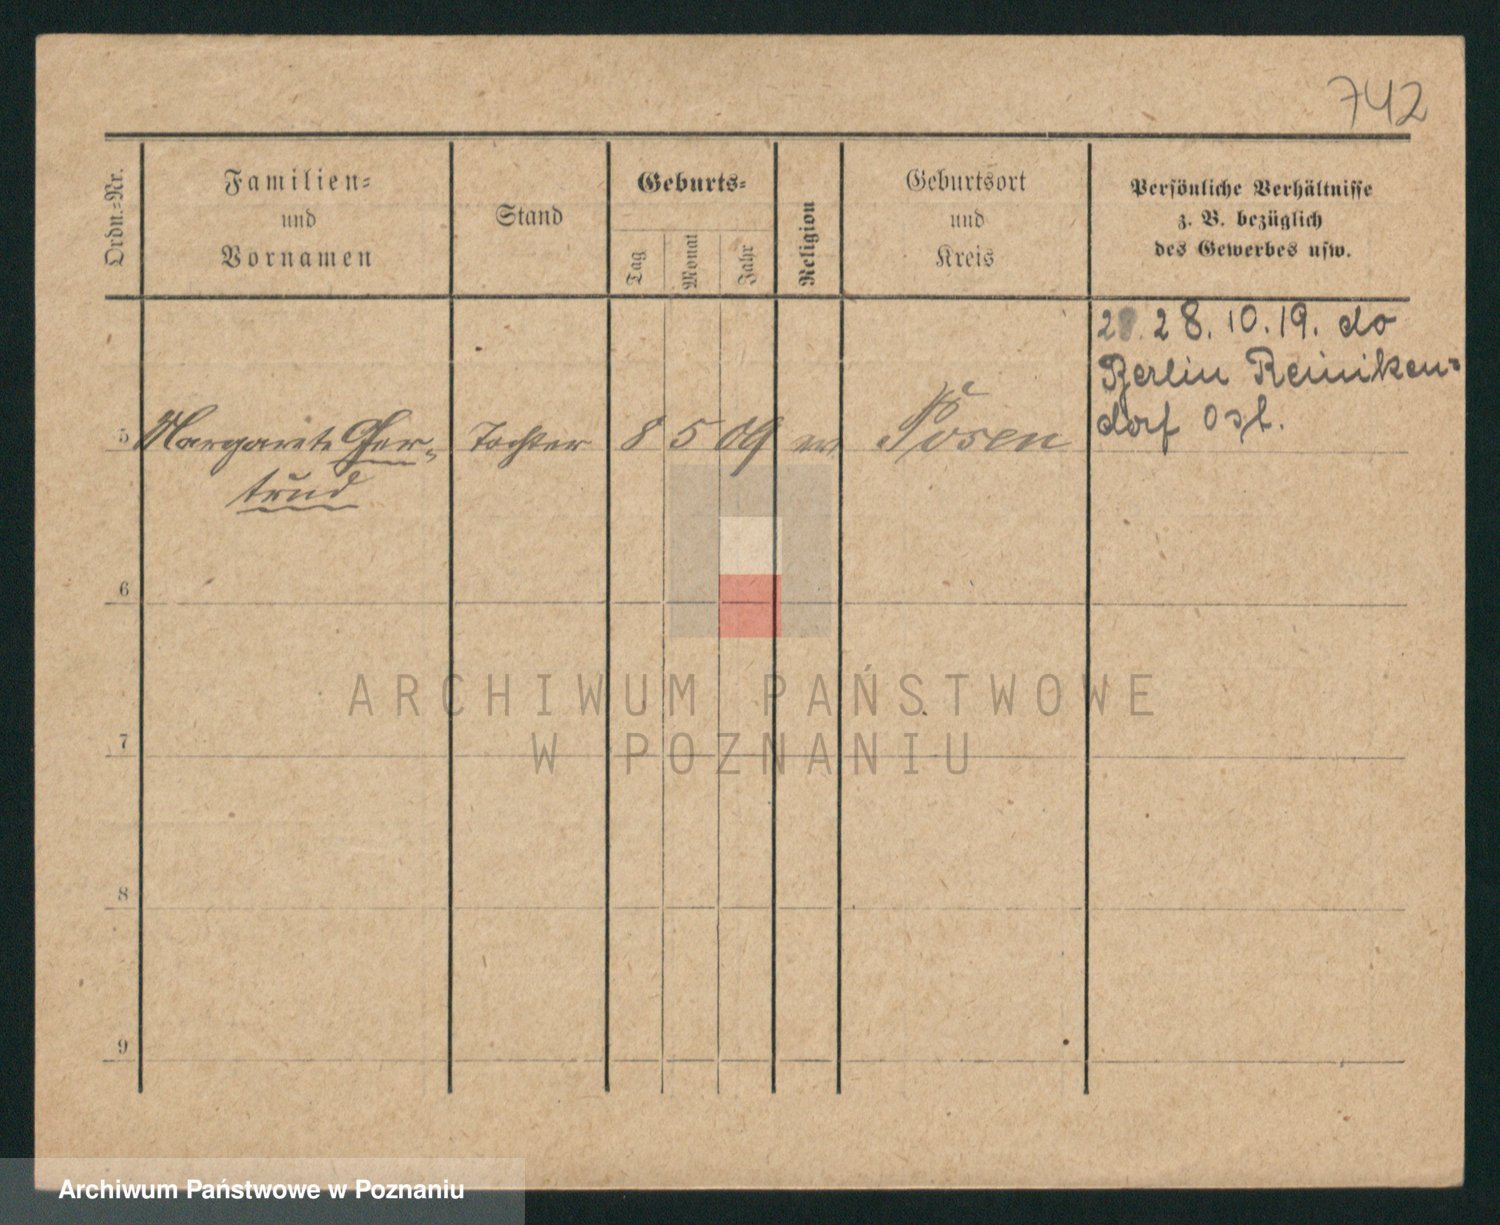 742
Ordn.-Nr.
Familien-
und
Vornamen
Stand
Geburts-
Tag
Monat
Jahr
Religion
Geburtsort
und
Kreis
Persönliche Verhältnisse
z. B. bezüglich
des Gewerbes usw.
28.10.19. do
Berlin Reiniken-
dorf Ost.
5 Margarete Ger- Tochter 8 5 09 Posen
trud
6
7
8
9
ARCHIWUM PAŃSTWOWE
W POZNANIU
Archiwum Państwowe w Poznaniu